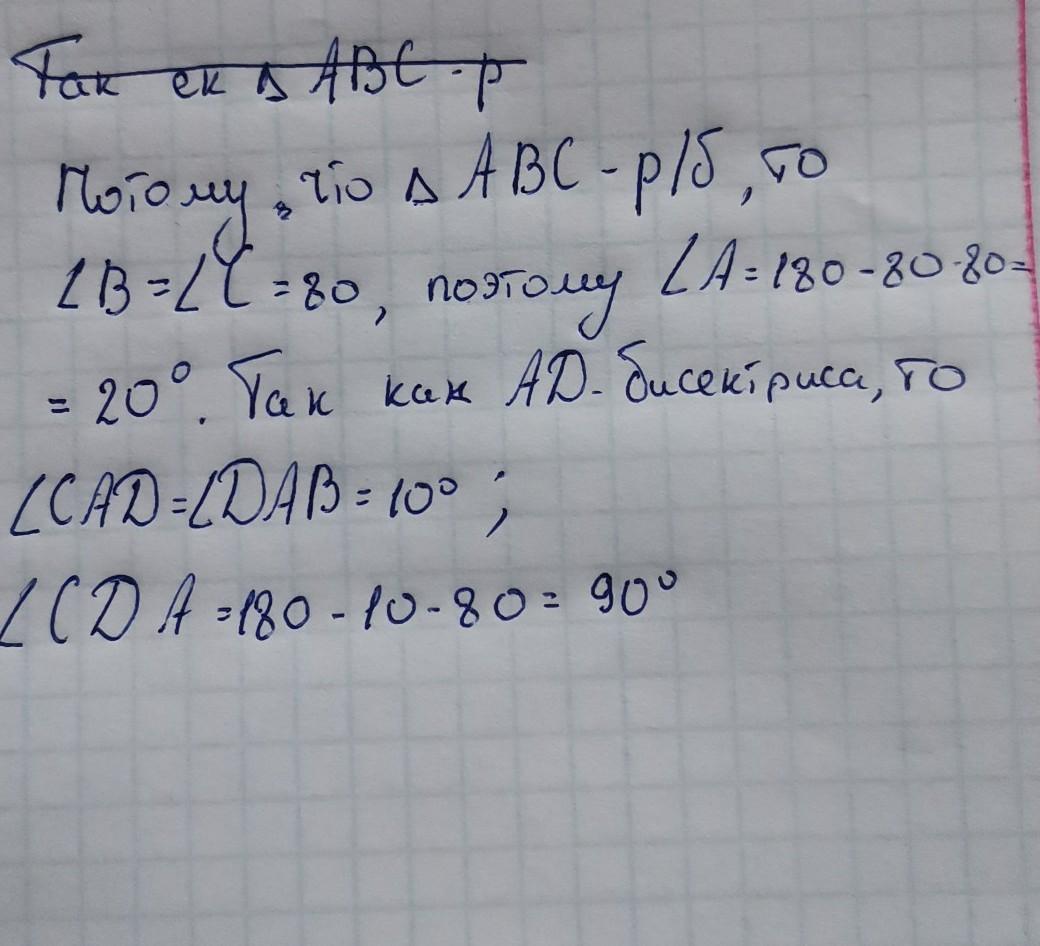 Так ек △ ABC - р
Потому, что △ ABC - р/б, то
∠B = ∠C = 80, поэтому ∠A = 180 - 80 - 80 =
= 20°. Так как AD - бисектриса, то
∠CAD = ∠DAB = 10° ;
∠CDA = 180 - 10 - 80 = 90°